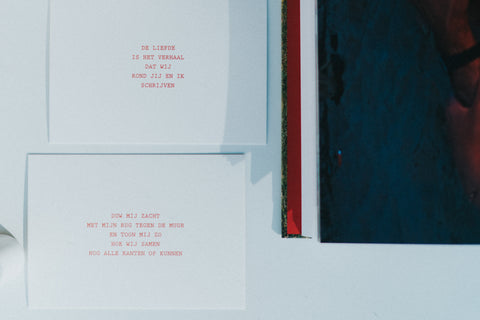 DE LIEFDE
IS HET VERHAAL
DAT WIJ
ROND JIJ EN IK
SCHRIJVEN
DUW MIJ ZACHT
MET MIJN RUG TEGEN DE MUUR
EN TOON MIJ ZO
HOE WIJ SAMEN
NOG ALLE KANTEN OP KUNNEN